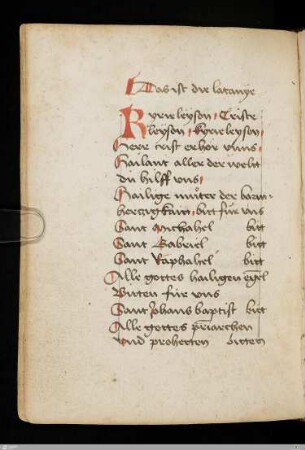 Das ist die latanÿe
Kyrieleyson Criste
leyson kyrieleyson
Herr crist erhör vnns
Hailant aller der welt
du hilff vns
Hailige muͦter der barm
hertzigkait bitt für vns
Sant Michahel bitt
Sant Gabriel bitt
Sant Raphahel bitt
Alle gottes hailigen engel
bitten für vns
Sant Johans baptist bitt
Alle gottes patriarchen
vnd propheten bitten